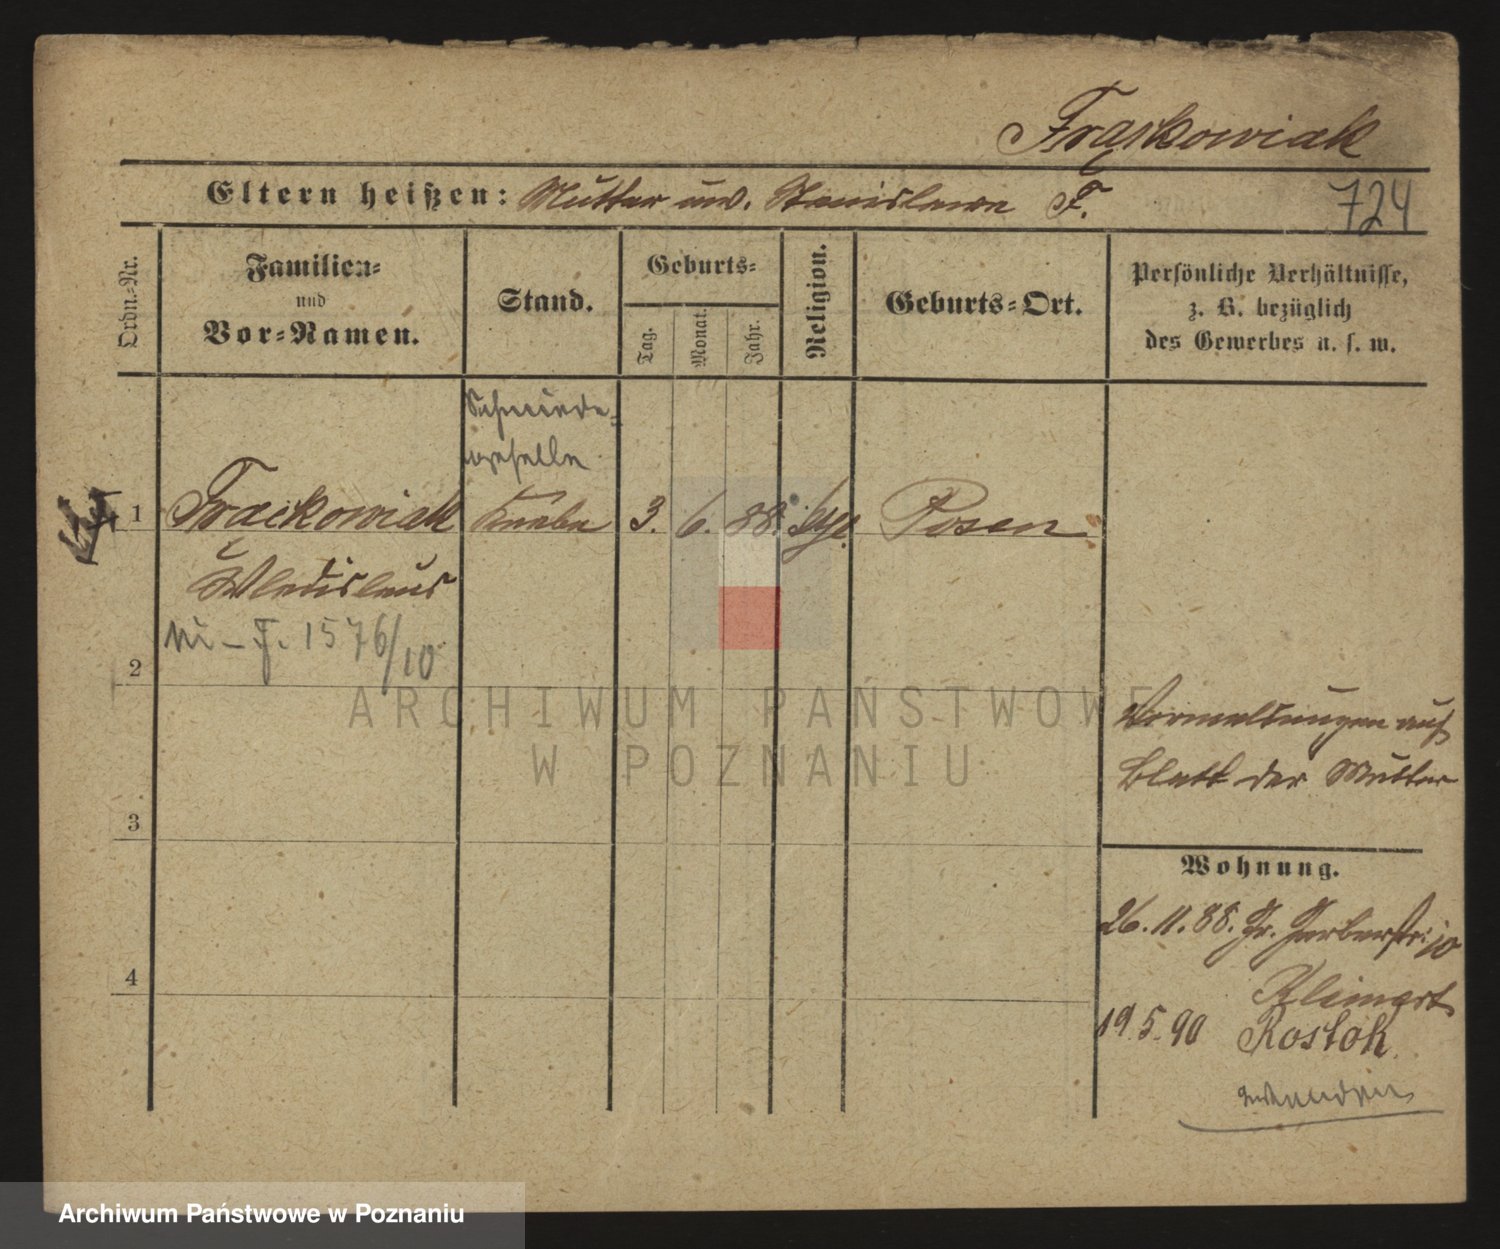 Frąckowiak
Eltern heißen: Mutter unv. Stanislawa F.
724
Ordn.-Nr.
Familien-
und
Vor-Namen.
Stand.
Geburts-
Tag.
Monat.
Jahr.
Religion.
Geburts-Ort.
Persönliche Verhältnisse,
z. B. bezüglich
des Gewerbes u. s. w.
Schmiede-
geselle
1 Frąckowiak Knabe 3. 6. 88. Posen
Wladislaus
F. 1576/10
2
3
4
Vermeldungen auf
Blatt der Mutter
Wohnung.
26.11.88. Gr. Gerberstr. 10
19.5.90 Rostok
ARCHIWUM PAŃSTWOWE
W POZNANIU
Archiwum Państwowe w Poznaniu